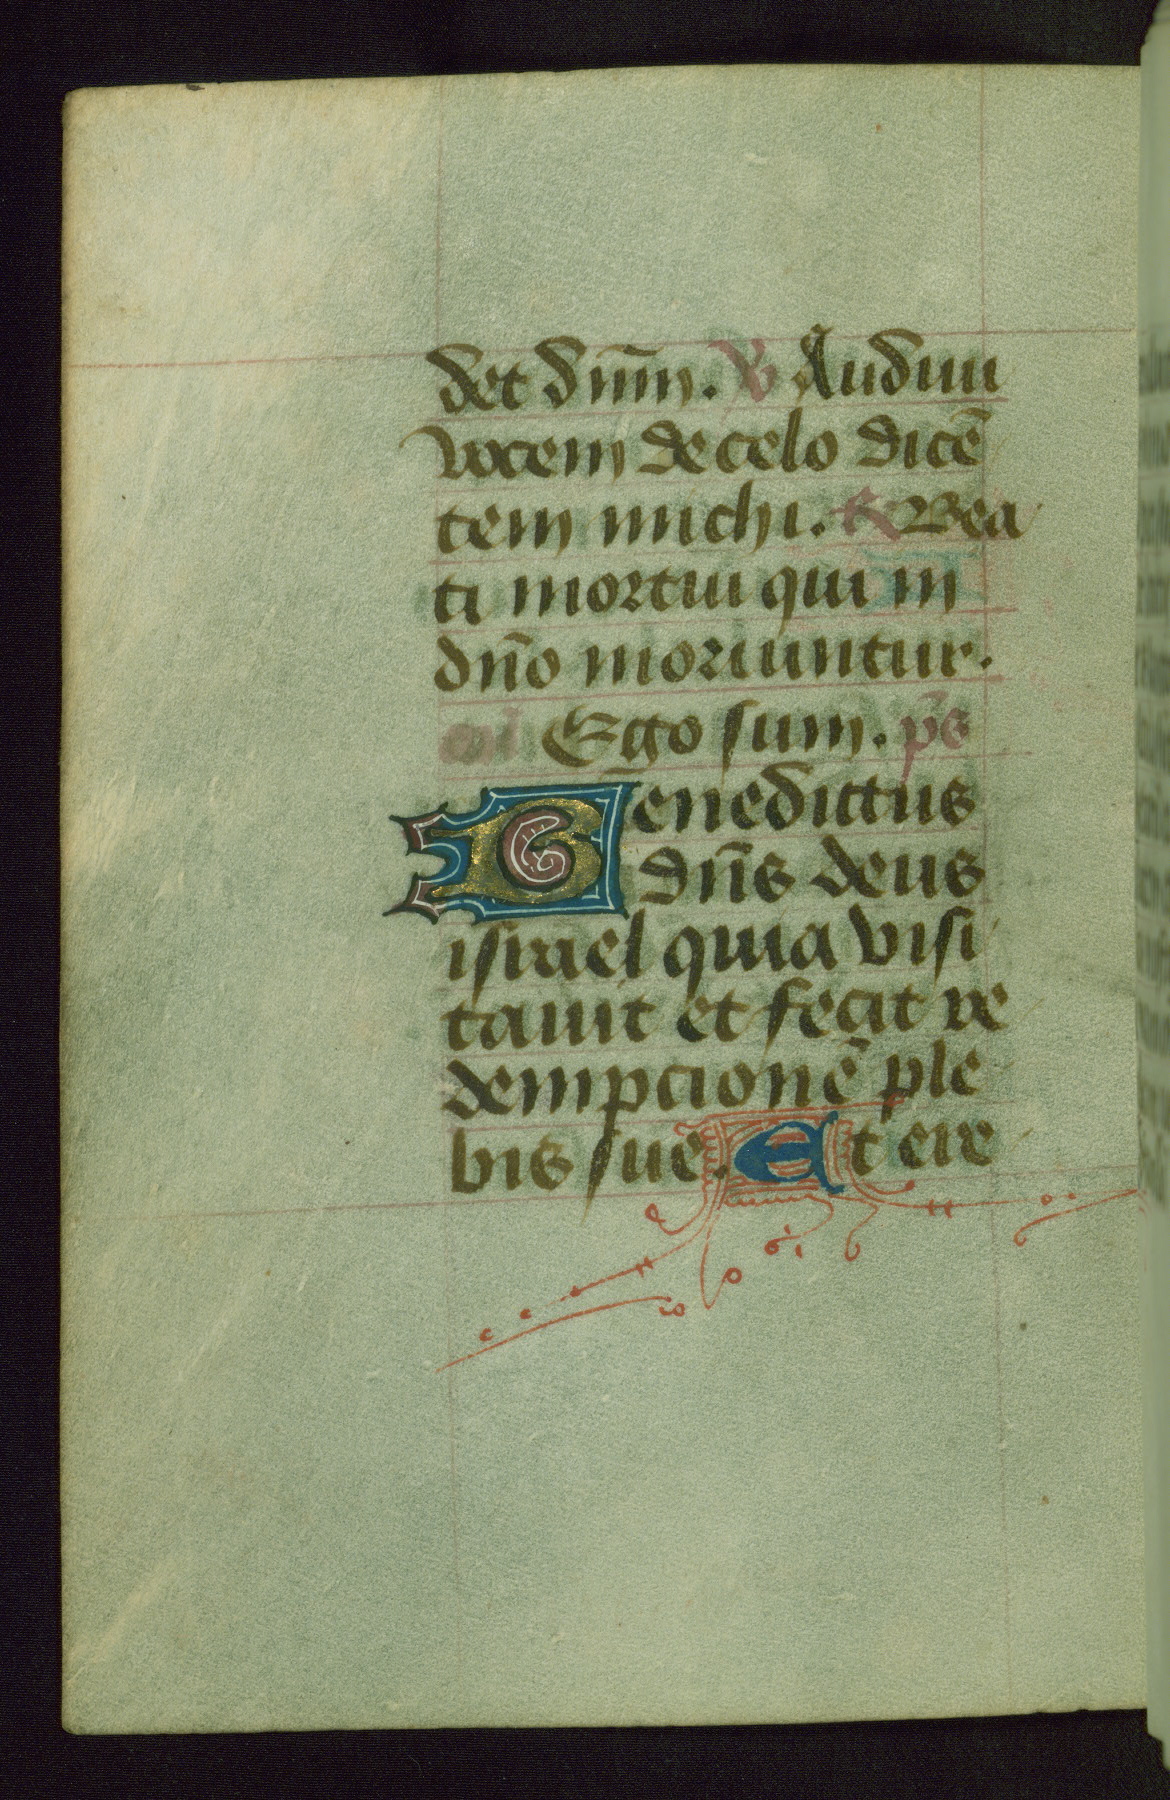 det dnm̄. ℣ Audiui
vocem de celo dicē
tem michi. ℟ Bea
ti mortui qui in
dn̄o moriuntur.
añ Ego sum. ps̄
Benedictus
dn̄s deus
israel quia visi
tauit et fecit re
dempcionē ple
bis sue. Et ere